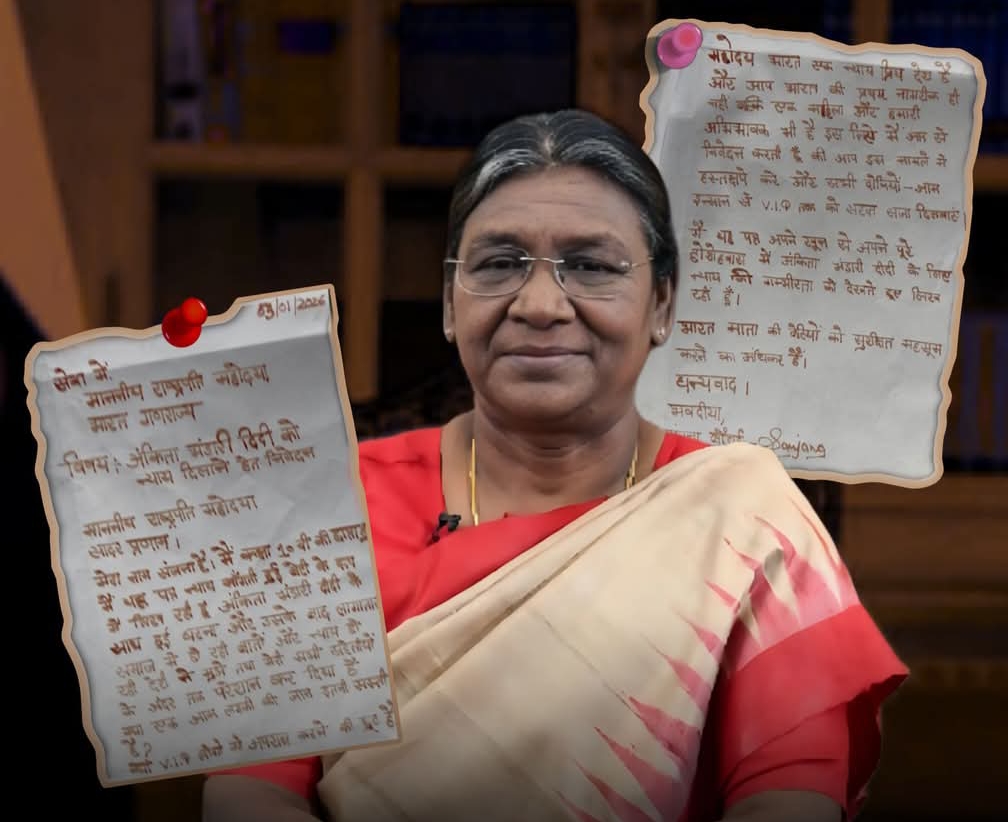 03/01/2026
सेवा में,
माननीय राष्ट्रपति महोदया,
भारत गणराज्य
विषय: अंकिता भंडारी दिदी को
न्याय दिलाने हेतु निवेदन
माननीय राष्ट्रपति महोदया
सादर प्रणाम।
मेरा नाम संजना है। मैं कक्षा 10 वी की छात्रा हूँ
मैं यह पत्र न्याय माँगती हुई बेटी के रूप
में लिख रही हूँ अंकिता भंडारी दीदी के
साथ हुई घटना और उसके बाद लागातार
समाज में हो रही बातों और न्याय हो
रही देरी ने मुझे तथा मेरी सभी सहेलियों
के अंदर तक परेशान कर दिया है
क्या एक आम लडकी की जान इतनी सस्ती
है?
क्या V.I.P लोगो को अपराध करने की छूट है
महोदय भारत एक न्याय प्रिय देश है
और आप भारत की प्रथम नागरीक ही
नहीं बल्कि एक महिला और हमारी
अभिभावक भी है इस लिये मैं आप से
निवेदन करती हूँ की आप इस मामले मे
हस्तक्षेप करे और सभी दोषियों-आम
इन्सान से V.I.P तक को सख्त सजा दिलवाएं
मैं या पत्र अपने खून से अपने पूरे
होशोहवास में अंकिता भंडारी दीदी के लिए
न्याय की गम्भीरता को देखते हुए लिख
रही हूँ।
भारत माता की बेटियों को सुरक्षित महसूस
करने का अधिकर है।
धन्यवाद।
भवदीया,
Sanjana